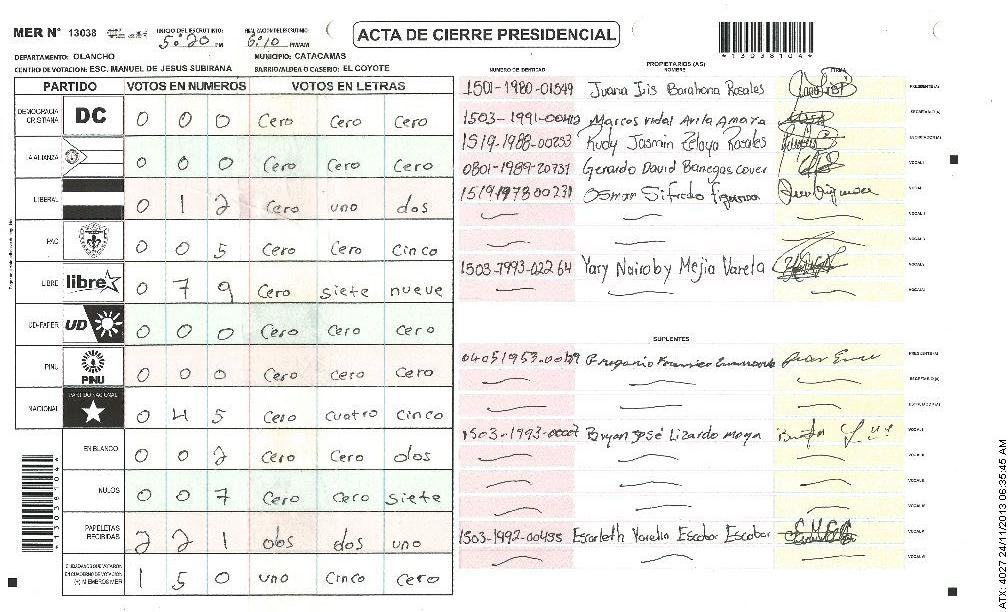 MER N° 13038
INICIO DEL ESCRUTINIO: 5:20 PM
6:10 PM/AM
ACTA DE CIERRE PRESIDENCIAL
*13038104*
DEPARTAMENTO: OLANCHO MUNICIPIO: CATACAMAS
CENTRO DE VOTACION: ESC. MANUEL DE JESUS SUBIRANA BARRIO/ALDEA O CASERIO: EL COYOTE
PARTIDO VOTOS EN NUMEROS VOTOS EN LETRAS
DEMOCRACIA CRISTIANA DC 0 0 0 Cero Cero Cero
LA ALIANZA 0 0 0 Cero Cero Cero
LIBERAL 0 1 2 Cero uno dos
PAC 0 0 5 Cero Cero Cinco
LIBRE libre 0 7 9 Cero siete nueve
UD-FAPER UD 0 0 0 Cero Cero Cero
PINU PINU 0 0 0 Cero Cero Cero
NACIONAL PARTIDO NACIONAL 0 4 5 Cero Cuatro Cinco
EN BLANCO 0 0 2 Cero Cero dos
NULOS 0 0 7 Cero Cero siete
PAPELETAS RECIBIDAS 2 2 1 dos dos uno
CIUDADANOS QUE VOTARON EN CUADERNO DE VOTACION (+) MIEMBROS MER 1 5 0 uno Cinco Cero
*13038104*
PROPIETARIOS (AS)
NUMERO DE IDENTIDAD NOMBRE FIRMA
1501-1980-01549 Juana Iris Barahona Rosales PRESIDENTE(A)
Marcos Vidal Avila Amara SECRETARIO(A)
1519-1988-00253 Rudy Jasmin Zelaya Rosales
0801-1989-20731 Gerardo David Banegas VOCAL I
1519 1978 00231 Osman Sifredo Figueroa
1503-1993-02264 Yary Nairoby Mejia Varela
SUPLENTES
PRESIDENTE(A)
SECRETARIO(A)
1503-1993-00007 Bryan José Lizardo moya
1503-1992-00455 Escarleth Yorelia Escobar Escobar
ATX: 4027 24/11/2013 06:35:45 AM